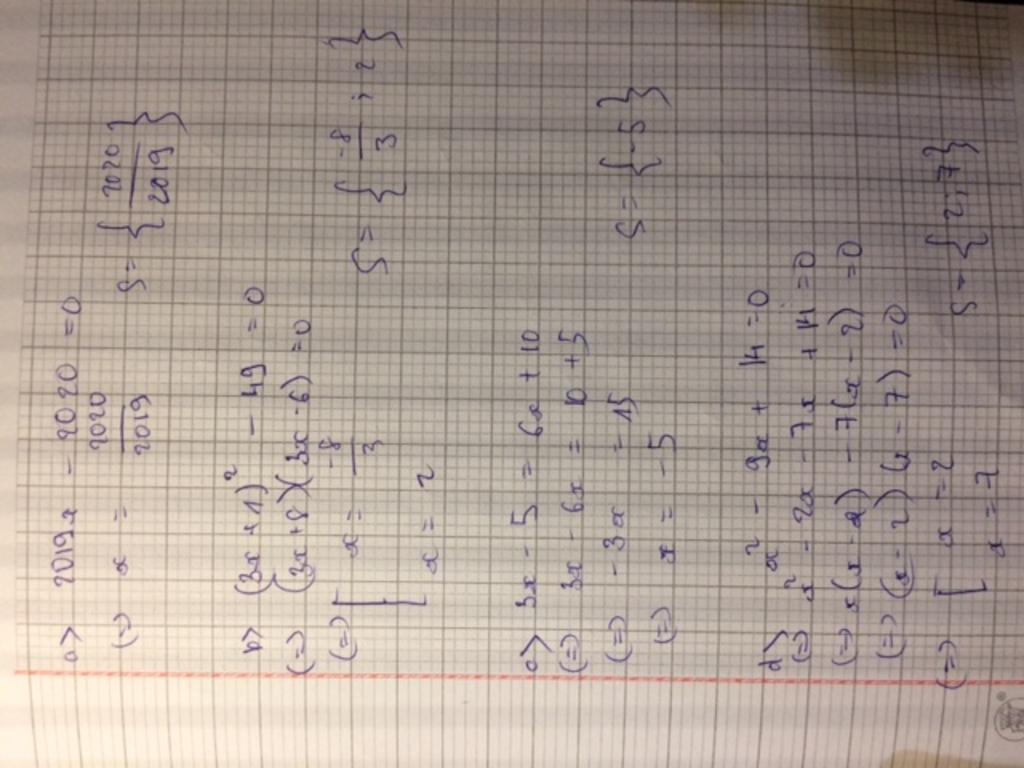 a> 2019x - 2020 = 0
(=) x = 2020/2019 S = { 2020/2019 }
b> (3x + 1)² - 49 = 0
(=) (3x + 8)(3x - 6) = 0
(=) [ x = -8/3 S = { -8/3 ; 2 }
x = 2
c> 3x - 5 = 6x + 10
(=) 3x - 6x = 10 + 5
(=) -3x = 15 S = { -5 }
(=) x = -5
d> x² - 9x + 14 = 0
(=) x² - 2x - 7x + 14 = 0
(=) x(x - 2) - 7(x - 2) = 0
(=) (x - 2)(x - 7) = 0
(=) [ x = 2 S = { 2 ; 7 }
x = 7